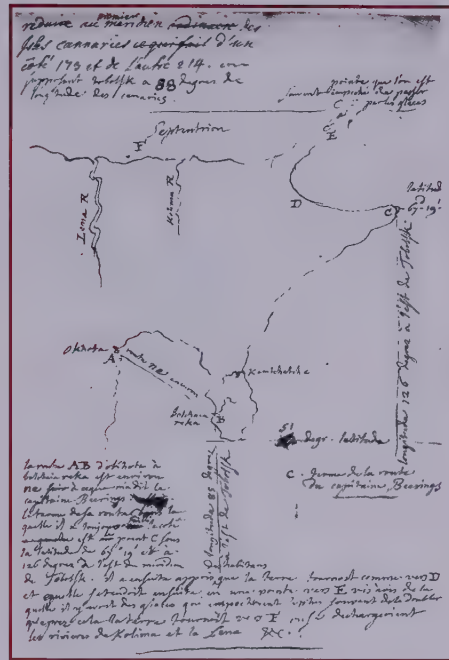 premier
reduire au meridien des
Isles cannaries ce qui fait d'un
coté 173 et de l'autre 214. en
supposant tobolsk a 88 degres de
longitude des canaries.
pointe que l'on est
souvent empeché de passer
par les glaces
Septentrion
F
C
E
D
C
latitud
67d 19'
Lena R
Kolma R
longitude 126 degrés à l'est de Tobolsk
Okhota
A
route
environ
Kamtchatka
Bolchaia
reka
B
51
degr. latitude
longitude 85 degrés
à l'est de Tobolsk
C terme de la route
du capitaine Beerings
la route AB d'okhota à
bolchaia reka est environ
ne
capitaine Beerings
le terme de sa route
quelle il a toujours
est au point C sous
la latitude de 67d 19' et à
126 degrés de l'est du meridien
habitans
de Tobolsk. il a ensuite appris que la terre tournoit comme vers D
et qu'elle s'etendoit ensuite en une pointe vers E vis à vis de la
quelle il y avoit des glaces qui empechoient souvent de la doubler
qu'apres cela la terre tournoit vers F
les rivieres de Kolima et la Lena &c.